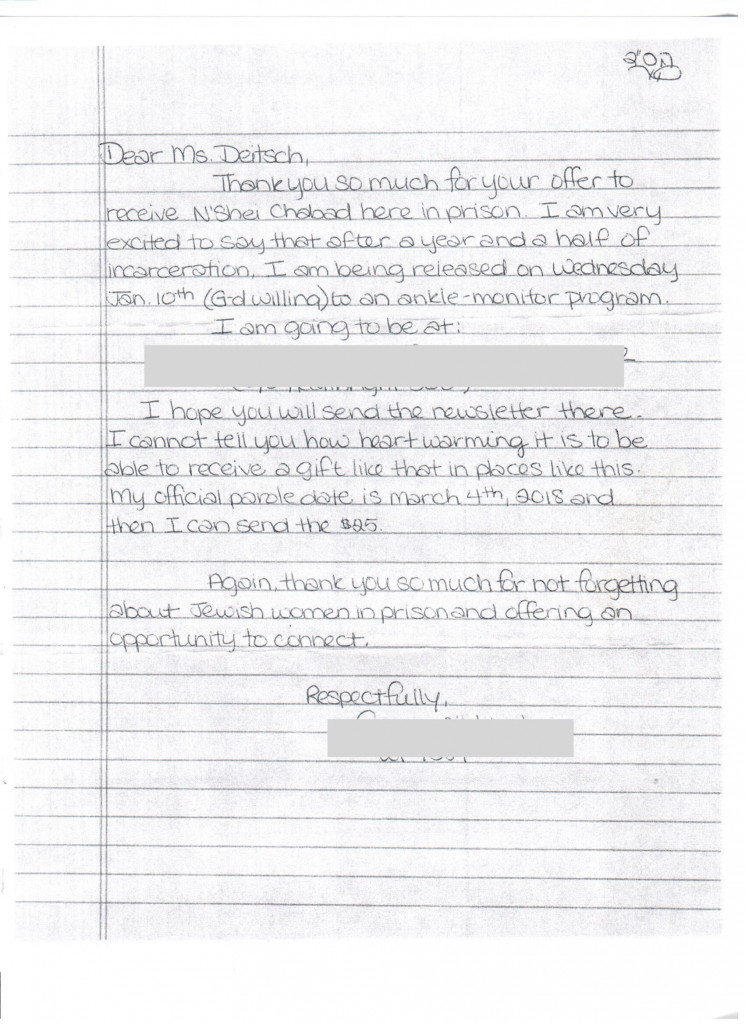 Dear Ms. Deitsch,
Thank you so much for your offer to
receive N'Shei Chabad here in prison. I am very
excited to say that after a year and a half of
incarceration, I am being released on Wednesday
Jan. 10th (G-d willing) to an ankle-monitor program.
I am going to be at:
I hope you will send the newsletter there.
I cannot tell you how heart warming it is to be
able to receive a gift like that in places like this.
My official parole date is March 4th, 2018 and
then I can send the $25.
Again, thank you so much for not forgetting
about Jewish women in prison and offering an
opportunity to connect.
Respectfully,